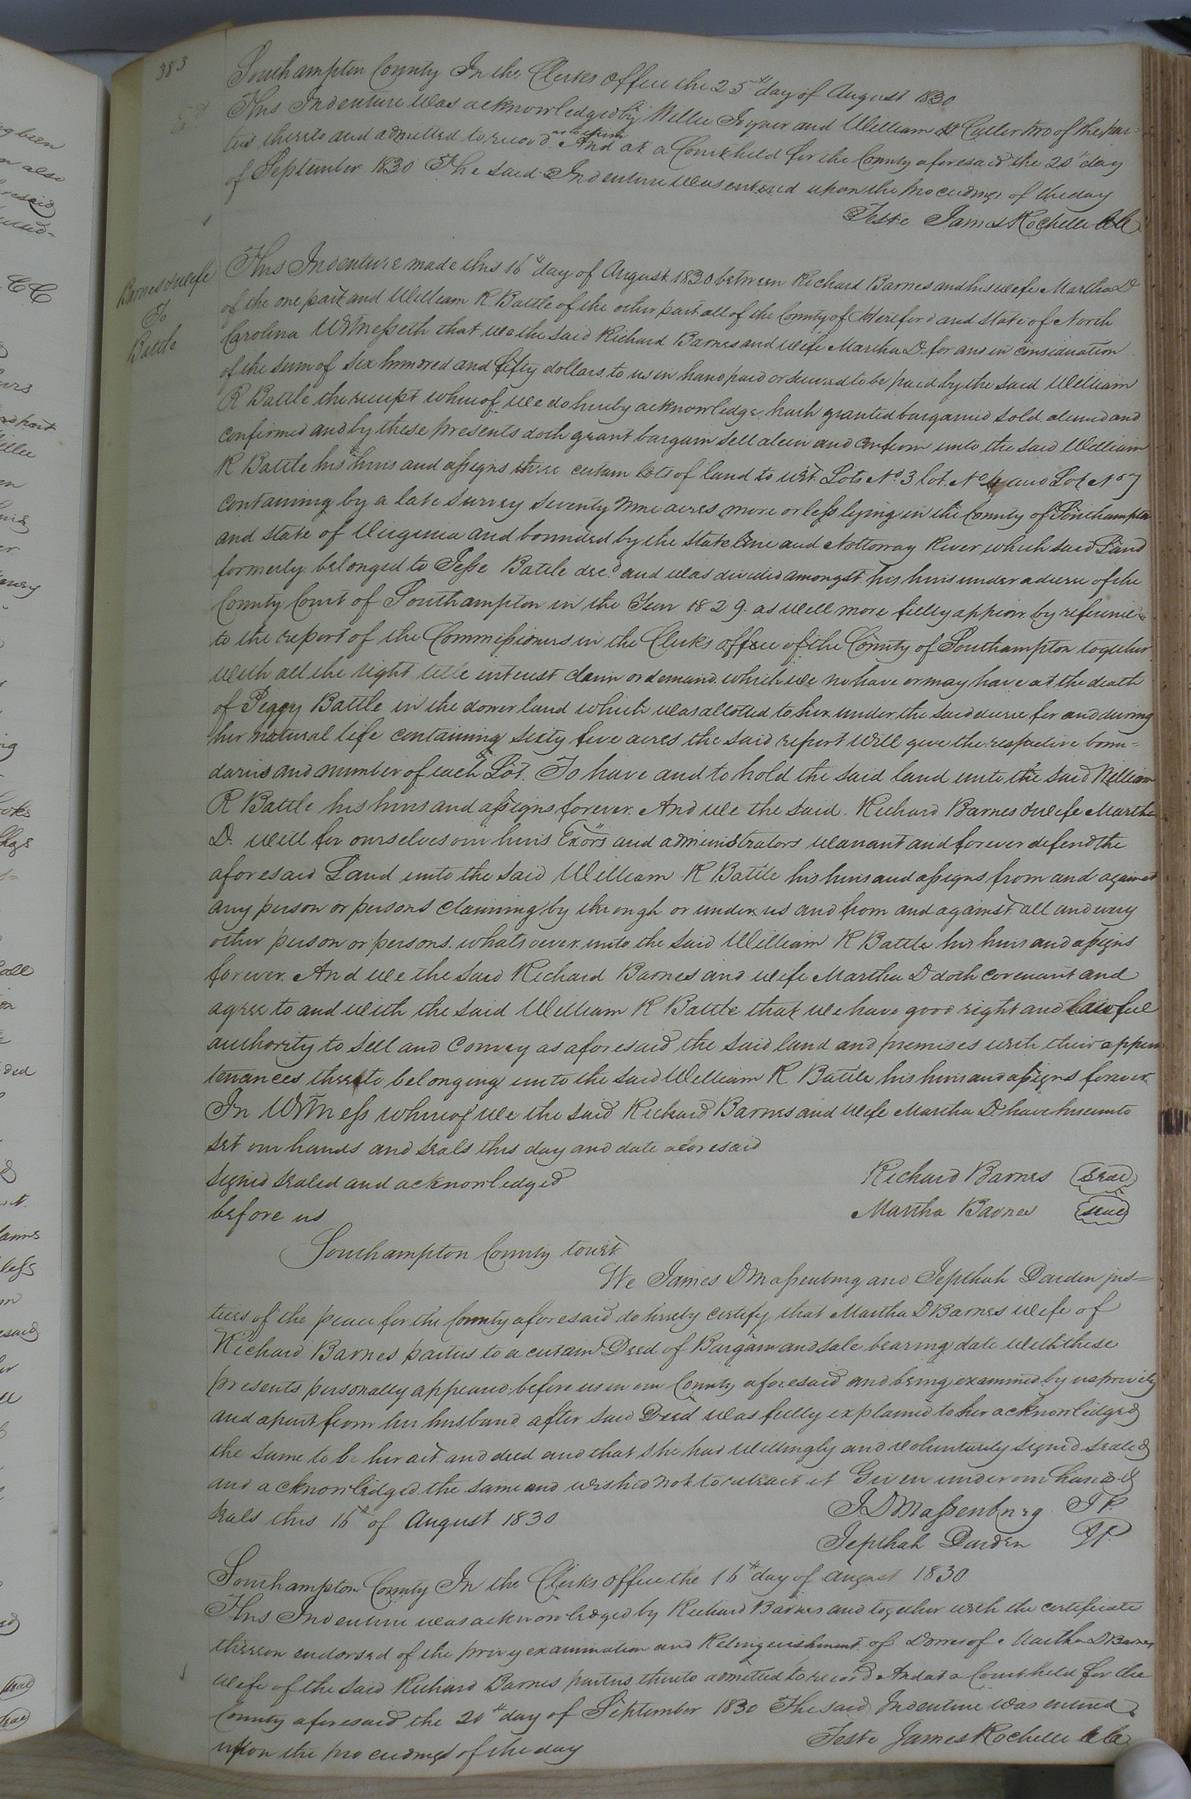 383
Southampton County In the Clerks office the 25th day of August 1830
This Indenture was acknowledged by Willie Joyner and William D Cutler two of the par-
ties thereto and admitted to record as to them And at a Court held for the County aforesaid the 20th day
of September 1830 The said Indenture was entered upon the proceedings of the day
Teste James Rochelle
Barnes & wife
To
Battle
This Indenture made this 16th day of August 1830 between Richard Barnes and his wife Martha D
of the one part and William R Battle of the other part all of the County of Hertford and State of North
Carolina Witnesseth that we the said Richard Barnes and wife Martha D. for and in consideration
of the sum of Six hundred and fifty dollars to us in hand paid or secured to be paid by the said William
R Battle the receipt whereof we do hereby acknowledge hath granted bargained sold aliened and
confirmed and by these presents doth grant bargain sell alien and confirm unto the said William
R Battle his heirs and assigns three certain lots of land to wit. Lots No 3 lot No 4 and Lot No 7
containing by a late survey seventy nine acres more or less lying in the County of Southampton
and State of Virginia and bounded by the state line and Nottoway River which said Land
formerly belonged to Jesse Battle decd and was divided amongst his heirs under a decree of the
County Court of Southampton in the Year 1829. as will more fully appear by reference
to the report of the Commissioners in the Clerks office of the County of Southampton together
with all the right title interest claim or demand which we no have or may have at the death
of Peggy Battle in the dower land which was allotted to her under the said decree for and during
her natural life containing sixty five acres the said report will give the respective boun-
daries and number of each Lot. To have and to hold the said land unto the said William
R Battle his heirs and assigns forever. And we the said Richard Barnes & wife Martha
D. will for ourselves our heirs Exors and administrators warrant and forever defend the
aforesaid Land unto the said William R Battle his heirs and assigns from and against
any person or persons claiming by through or under us and from and against all and every
other person or persons whatsoever unto the said William R Battle his heirs and assigns
forever. And we the said Richard Barnes and wife Martha D doth covenant and
agree to and with the said William R Battle that we have good right and lawful
authority to sell and convey as aforesaid the said land and premises with their appur
tenances thereto belonging unto the said William R Battle his heirs and assigns forever.
In Witness whereof we the said Richard Barnes and wife Martha D have hereunto
set our hands and seals this day and date aforesaid
signed sealed and acknowledged Richard Barnes seal
before us Martha Barnes seal
Southampton County towit
We James D Massenburg and Jepthah Darden jus-
tices of the peace for the County aforesaid do hereby certify that Martha D Barnes wife of
Richard Barnes parties to a certain Deed of Bargain and sale bearing date with these
presents personally appeared before us in our County aforesaid and being examined by us privily
and apart from her husband after said Deed was fully explained to her acknowledged
the same to be her act and deed and that she had willingly and voluntarily signed sealed
and acknowledged the same and wished not to retract it Given under our hands &
seals this 16th of August 1830 J D Massenburg JP.
Jepthah Darden JP
Southampton County In the Clerks office the 16th day of August 1830
This Indenture was acknowledged by Richard Barnes and together with the certificate
thereon endorsed of the privy examination and Relinquishment of Dower of Martha D Barnes
wife of the said Richard Barnes parties thereto admitted to record And at a Court held for the
County aforesaid the 20th day of September 1830 The said Indenture was entered
upon the proceedings of the day Teste James Rochelle